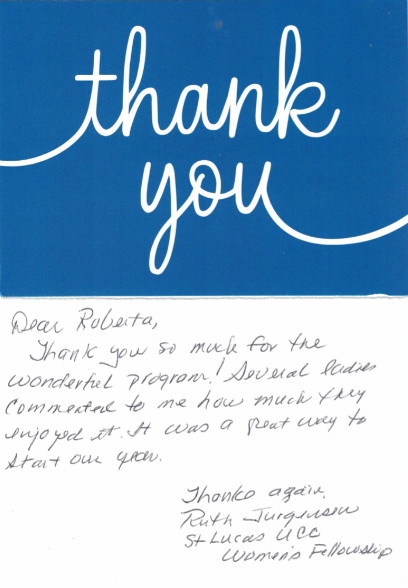 thank
you
Dear Roberta,
Thank you so much for the
wonderful program! Several ladies
commented to me how much they
enjoyed it. It was a great way to
start our year.
Thanks again,
Ruth Jurgensen
St Lucas UCC
Women's Fellowship